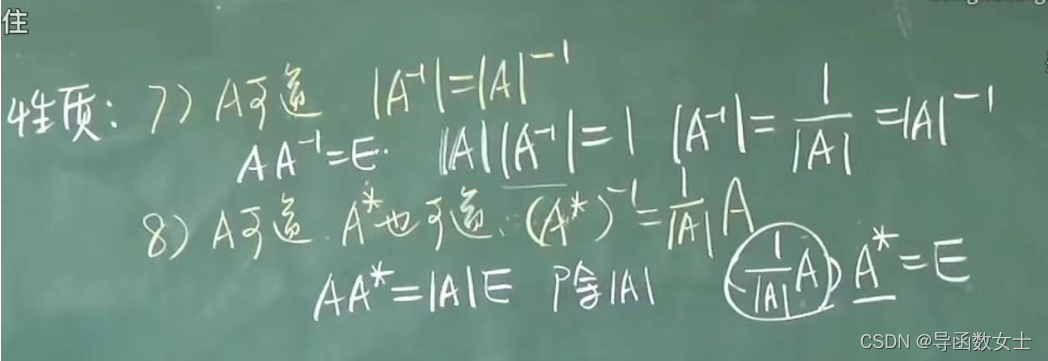 住
性质: 7) A可逆 |A⁻¹|=|A|⁻¹
AA⁻¹=E. |A||A⁻¹|=1 |A⁻¹|=1/|A|=|A|⁻¹
8) A可逆. A*也可逆. (A*)⁻¹=1/|A| A
AA*=|A|E 除|A| (1/|A| A) A*=E
CSDN @导函数女士